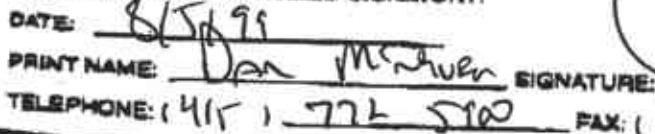 DATE: 8/5/99
PRINT NAME: Dan SIGNATURE:
TELEPHONE: (415) 772 5700 FAX: (